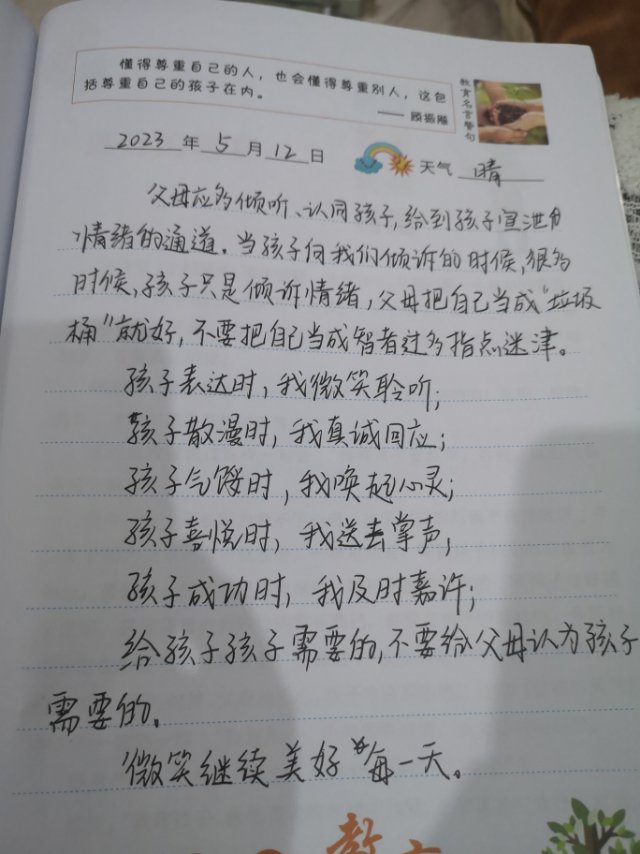 懂得尊重自己的人，也会懂得尊重别人，这包
括尊重自己的孩子在内。
—— 顾振飚
教育名言警句
2023 年 5 月 12 日
天气 晴
父母应多倾听、认同孩子，给到孩子宣泄
情绪的通道。当孩子向我们倾诉的时候，很多
时候，孩子只是倾诉情绪，父母把自己当成“垃圾
桶”就好，不要把自己当成智者过多指点迷津。
孩子表达时，我微笑聆听；
孩子散漫时，我真诚回应；
孩子气馁时，我唤起心灵；
孩子喜悦时，我送去掌声；
孩子成功时，我及时嘉许；
给孩子孩子需要的，不要给父母认为孩子
需要的。
微笑继续美好每一天。
教